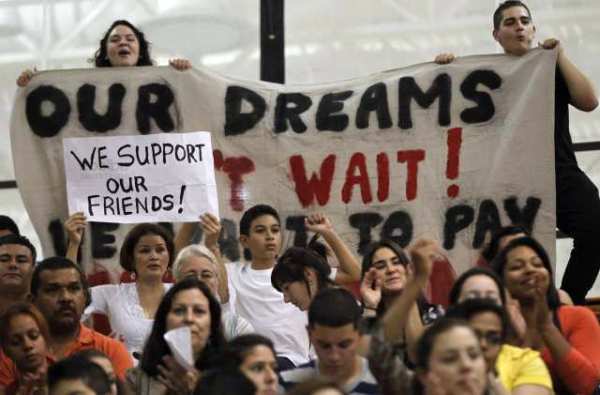 OUR DREAMS
'T WAIT!
WE TO PAY
WE SUPPORT
OUR
FRIENDS!